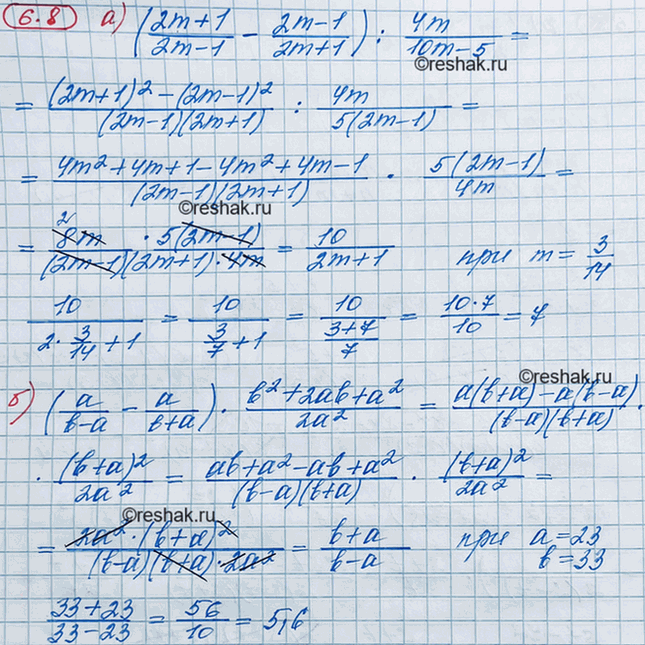 6.8 а) ((2m+1)/(2m-1) - (2m-1)/(2m+1)) : 4m/(10m-5) =
©reshak.ru
= ((2m+1)² - (2m-1)²)/((2m-1)(2m+1)) : 4m/(5(2m-1)) =
= (4m²+4m+1-4m²+4m-1)/((2m-1)(2m+1)) · 5(2m-1)/(4m) =
©reshak.ru
= (2 8m · 5(2m-1))/((2m-1)(2m+1)·4m) = 10/(2m+1) при m = 3/14
10/(2·3/14+1) = 10/(3/7+1) = 10/((3+7)/7) = (10·7)/10 = 7
©reshak.ru
б) (a/(b-a) - a/(b+a)) · (b²+2ab+a²)/(2a²) = (a(b+a)-a(b-a))/((b-a)(b+a)) ·
· (b+a)²/(2a²) = (ab+a²-ab+a²)/((b-a)(b+a)) · (b+a)²/(2a²) =
©reshak.ru
= (2a²·(b+a)²)/((b-a)(b+a)·2a²) = (b+a)/(b-a) при a=23
b=33
(33+23)/(33-23) = 56/10 = 5,6